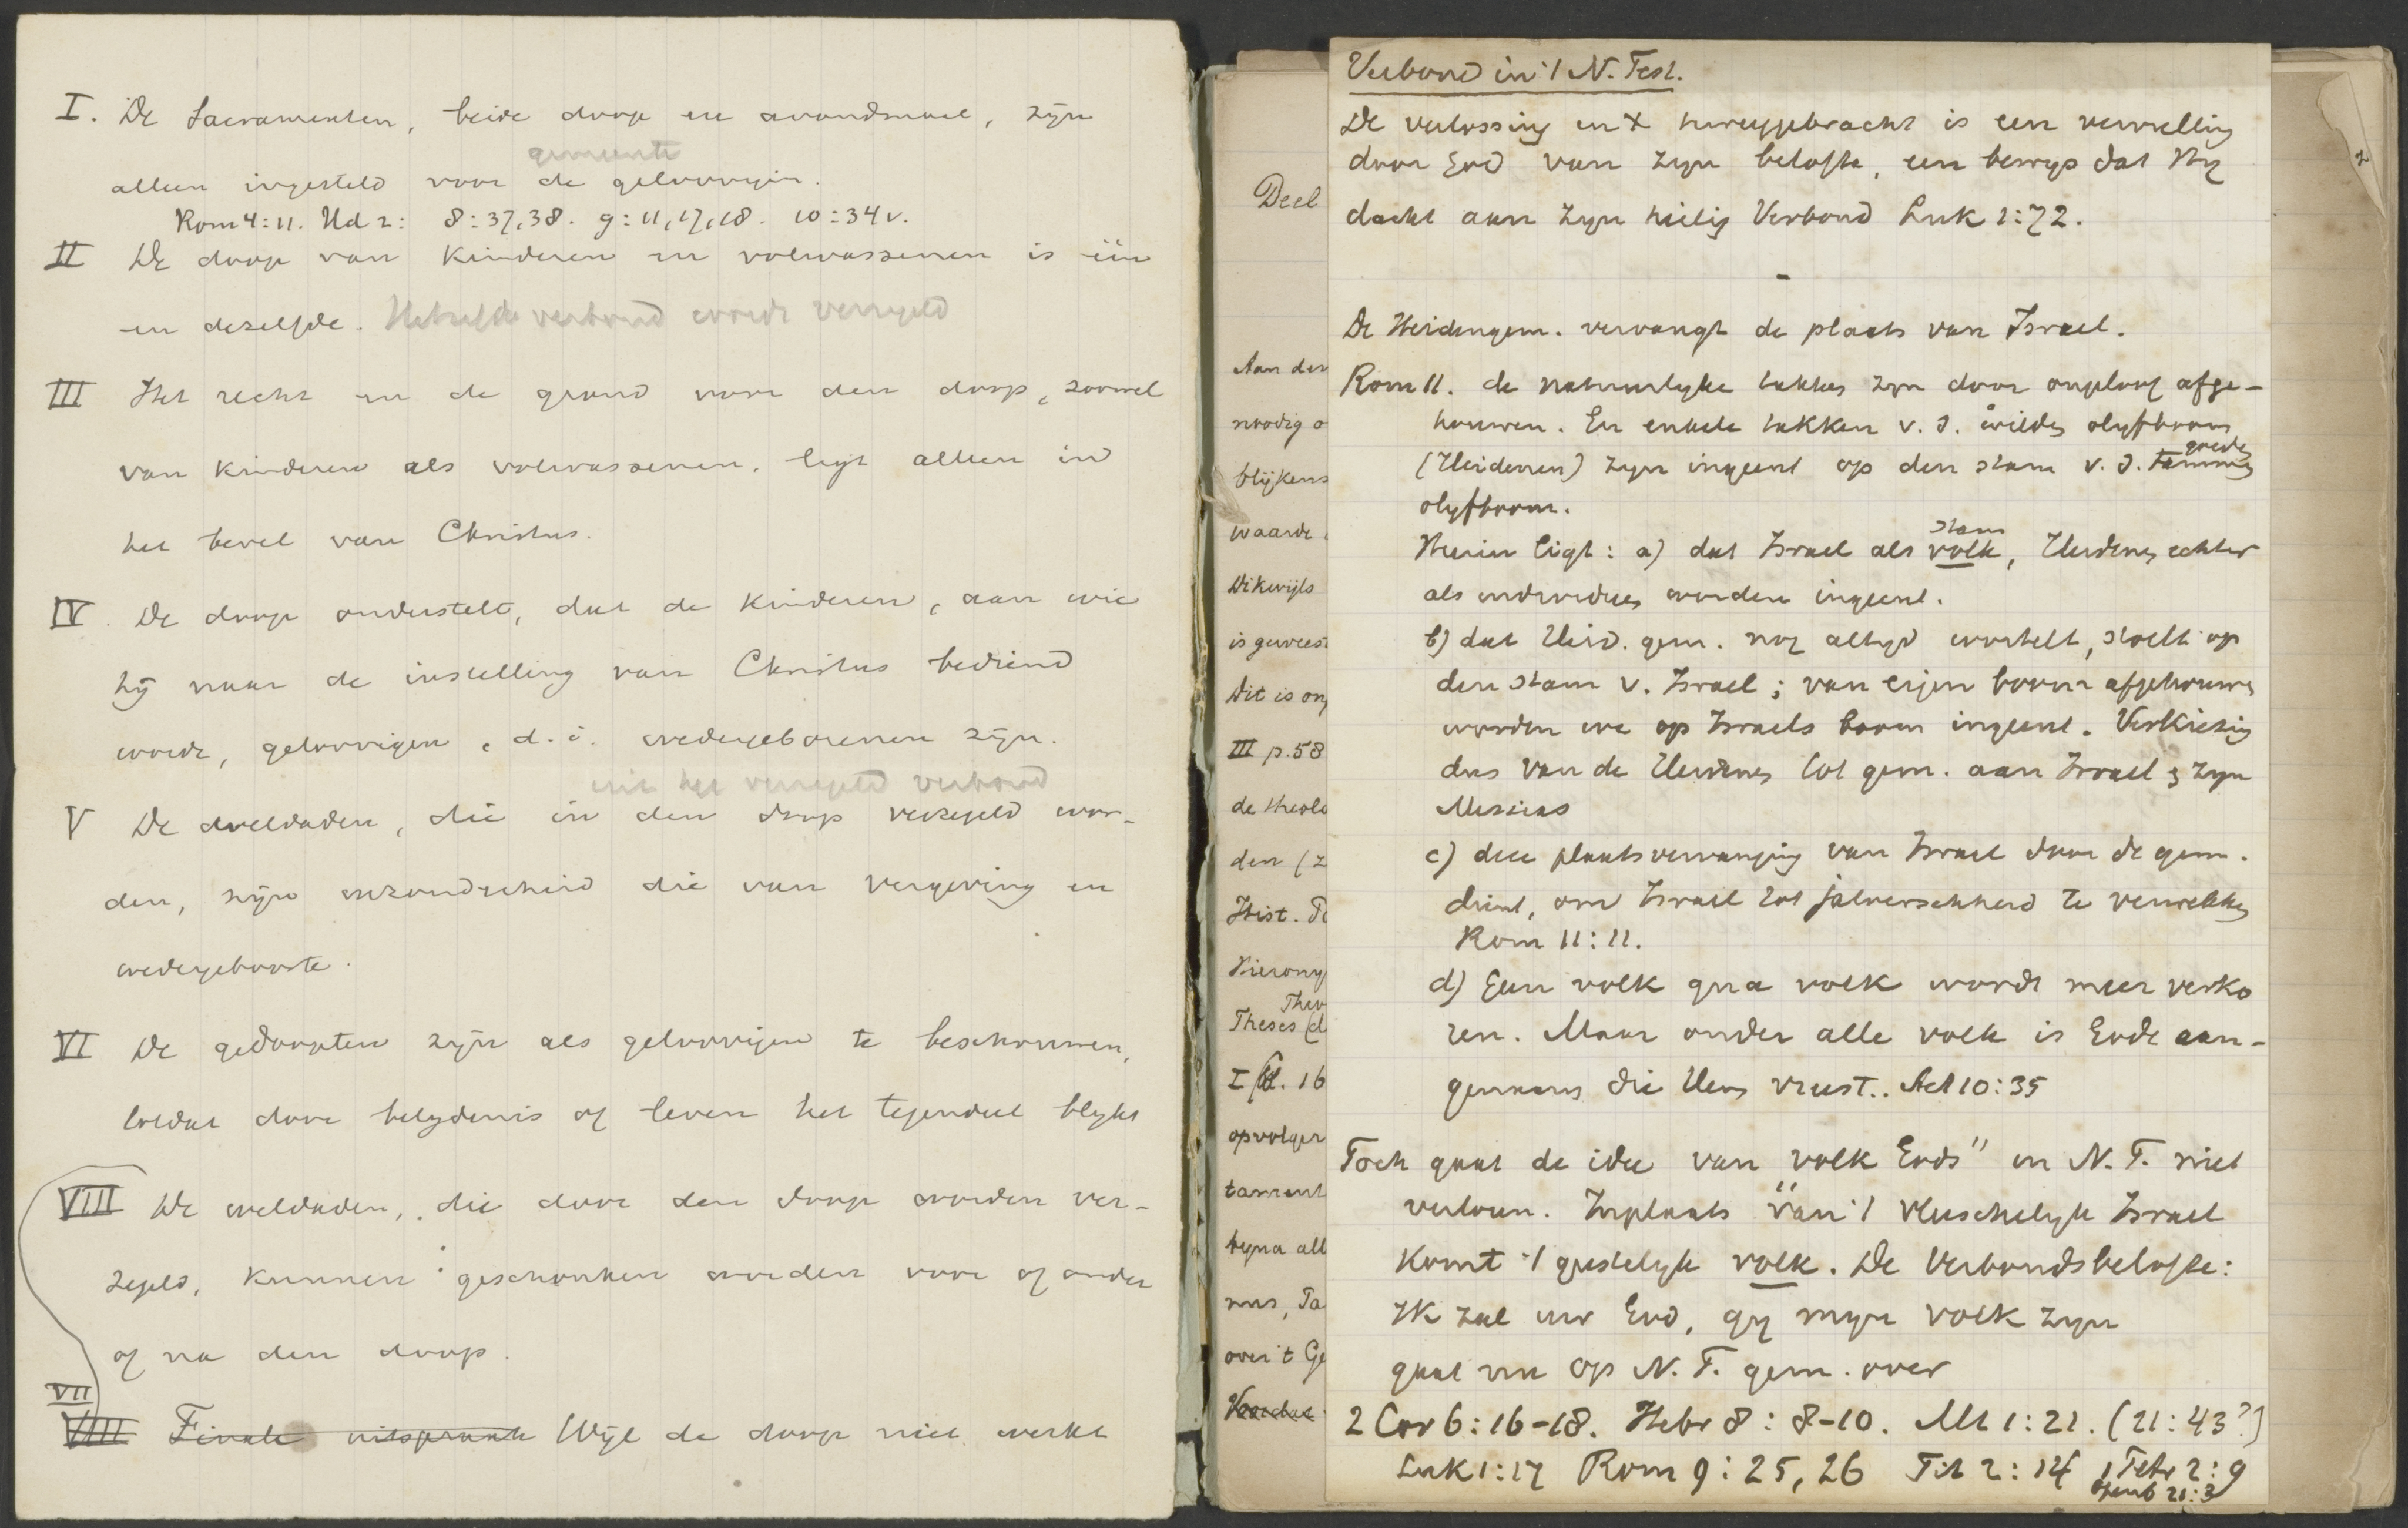 I. De Sacramenten, beide doop en avondmaal, zijn
gemeente
alleen ingesteld voor de geloovigen.
Rom 4:11. Hd 2: 8:37,38. 9:11,17,18. 10:34v.
II De doop van kinderen en volwassenen is één
en dezelfde. Hetzelfde verbond wordt verzegeld
III Het recht en de grond voor den doop, zoowel
van kinderen als volwassenen, ligt alleen in
het bevel van Christus.
IV. De doop onderstelt, dat de kinderen, aan wie
hij naar de instelling van Christus bediend
wordt, geloovigen, d.i. wedergeborenen zijn.
het verzegeld verbond
V De weldaden, die in den doop verzegeld wor-
den, zijn inzonderheid die van vergeving en
wedergeboorte.
VI De gedoopten zijn als geloovigen te beschouwen,
totdat door belydenis of leven het tegendeel blykt
VIII De weldaden, die door den doop worden ver-
zegeld, kunnen geschonken worden voor of onder
of na den doop.
VII
VIII Finale uitspraak Wijl de doop niet werkt
Deel
Aan den
noodig o
blijkens
waarde
Dikwijls
is geweest
Dit is on
III p. 58
de theolo
den (z
Hist. T
Hierony
Theo
Theses (d
I bl. 16
opvolger
tament
byna all
nus, Ta
over 't Ge
Voordat
Verbond in 't N. Test.
De verlossing in X teruggebracht is een vervulling
door God van zyn belofte, een bewys dat Hy
dacht aan zyn heilig Verbond Luk 1:72.
-
De Heidengem. vervangt de plaats van Israel.
Rom 11. de natuurlyke takken zyn door ongeloof afge-
houwen. En enkele takken v. d. wilden olyfboom
goeden
(Heidenen) zyn ingeent op den stam v. d. tammen
olyfboom.
stam
Hierin ligt: a) dat Israel als volk, Heidenen echter
als individuen worden ingeent.
b) dat Heid. gem. nog altyd wortelt, stoelt op
den stam v. Israel; van eigen boom afgehouwen
worden we op Israels boom ingeent. Verkiezing
dus van de Heidenen tot gem. aan Israel & zyn
Messias
c) deze plaatsvervanging van Israel door de gem.
dient, om Israel tot jaloerschheid te verwekken
Rom 11:11.
d) Geen volk qua volk wordt meer verko
ren. Maar onder alle volk is Gode aan-
genaam die Hem vreest.. Act 10:35
Toch gaat de idee van "volk Gods" in N. T. niet
verloren. Inplaats van 't vleeschelyk Israel
komt 't geestelyk volk. De Verbondsbelofte:
Ik zal uw God, gy myn volk zyn
gaat nu op N. T. gem. over
2 Cor 6:16-18. Hebr 8:8-10. Mt 1:21. (21:43?)
Luk 1:17 Rom 9:25,26 Tit 2:14 1 Petr 2:9
Openb 21:3
2